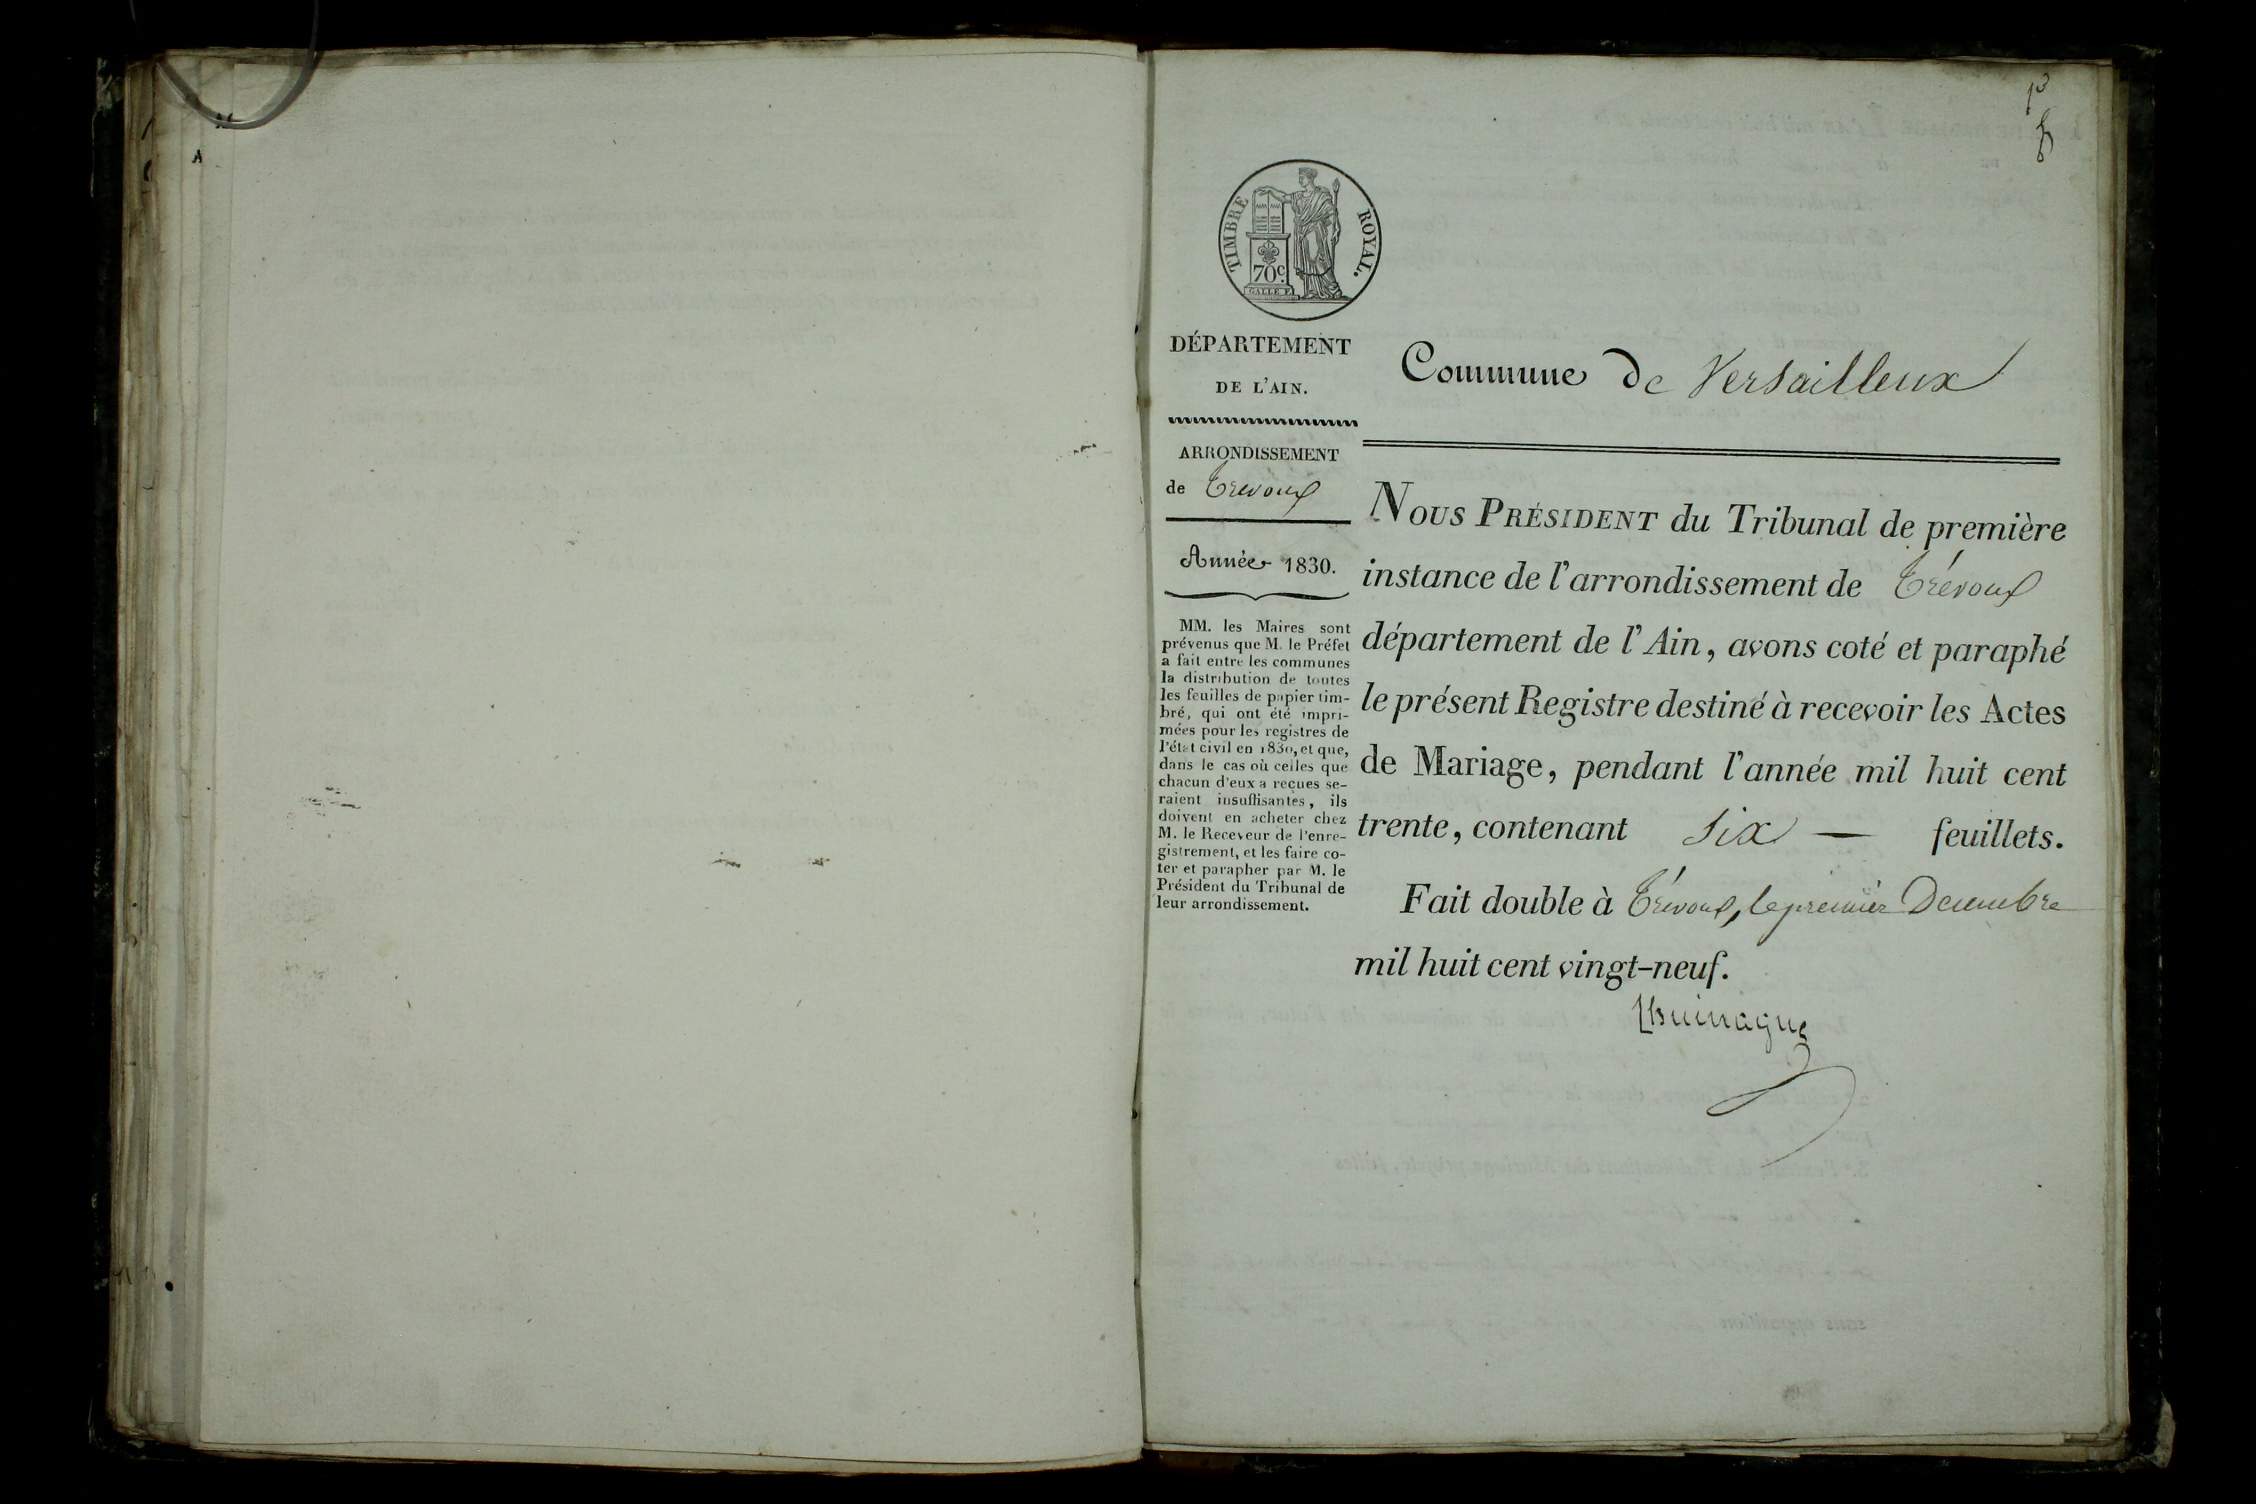 TIMBRE ROYAL.
70c.
GALLE F.
DÉPARTEMENT
DE L'AIN.
ARRONDISSEMENT
de Trévoux
Année 1830.
MM. les Maires sont
prévenus que M. le Préfet
a fait entre les communes
la distribution de toutes
les feuilles de papier tim-
bré, qui ont été impri-
mées pour les registres de
l'état civil en 1830, et que,
dans le cas où celles que
chacun d'eux a reçues se-
raient insuffisantes, ils
doivent en acheter chez
M. le Receveur de l'enre-
gistrement, et les faire co-
ter et parapher par M. le
Président du Tribunal de
leur arrondissement.
Commune de Versailleux
NOUS PRÉSIDENT du Tribunal de première
instance de l'arrondissement de Trévoux
département de l'Ain, avons coté et paraphé
le présent Registre destiné à recevoir les Actes
de Mariage, pendant l'année mil huit cent
trente, contenant six — feuillets.
Fait double à Trévoux, le premier Decembre
mil huit cent vingt-neuf.